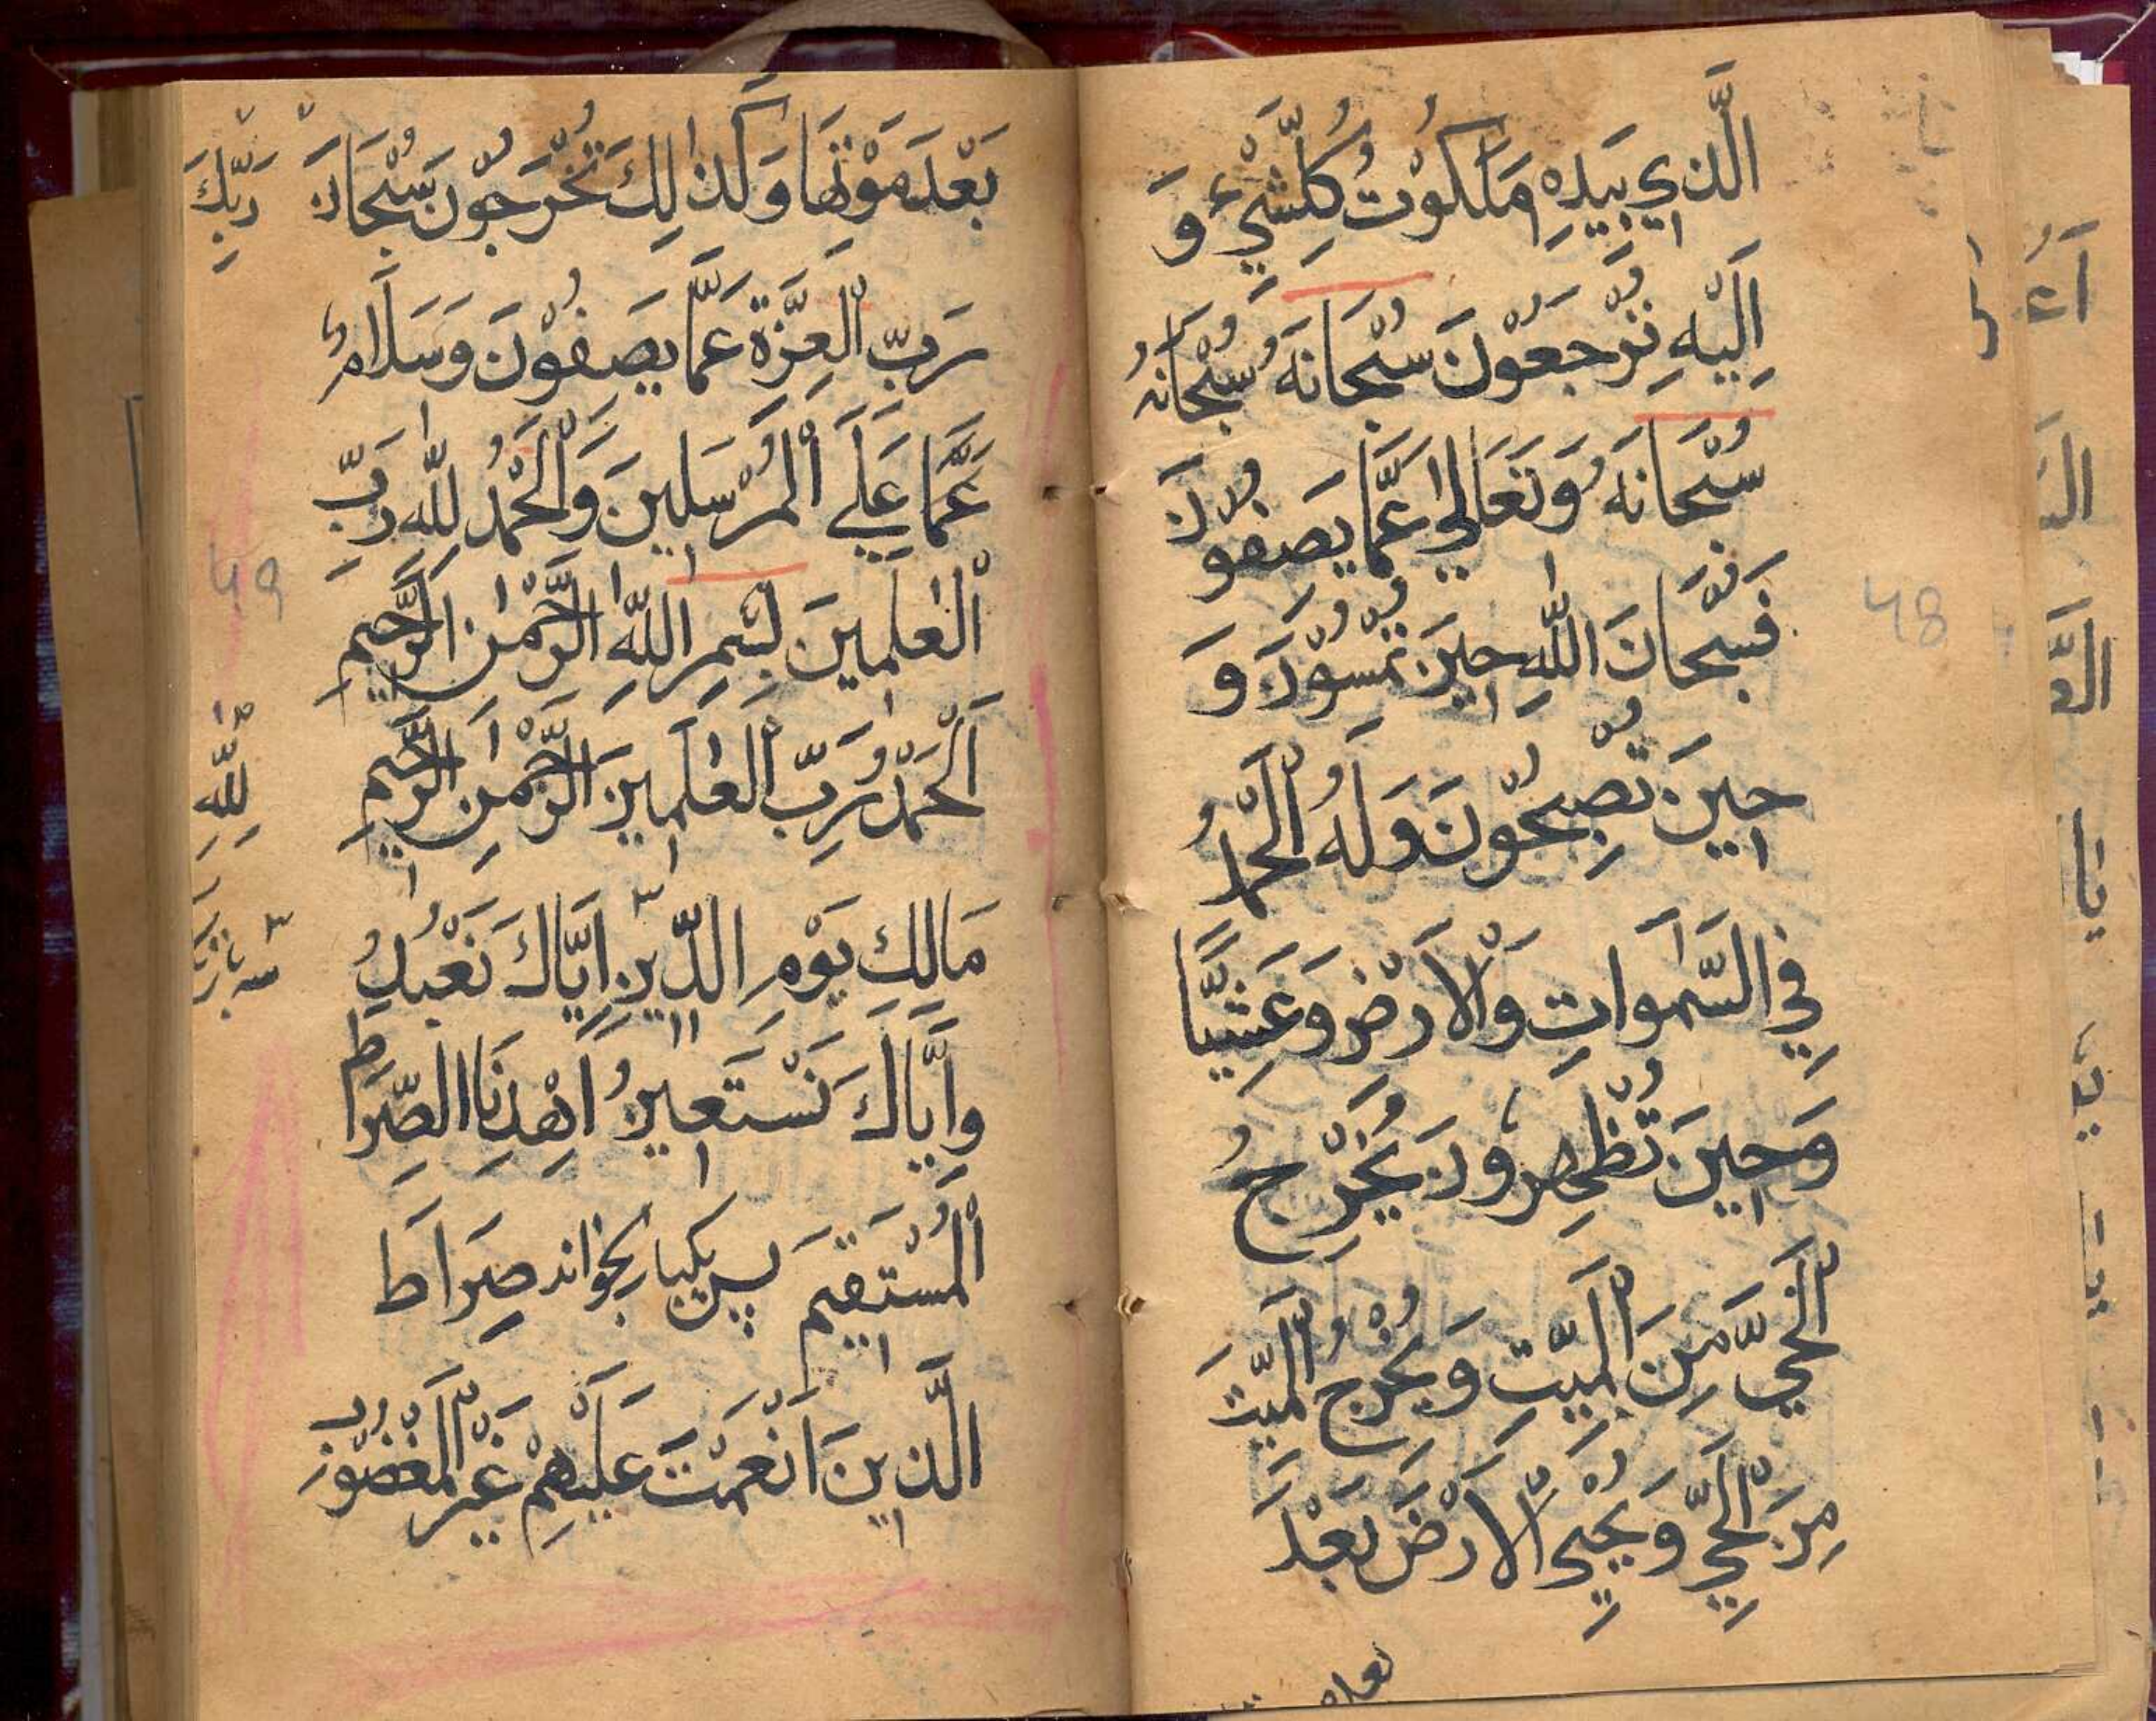 الَّذِي بِيَدِهِ مَلَكُوْتُ كُلِّشَيْءٍ وَ
اِلَيْهِ تُرْجَعُوْنَ سُبْحَانَهُ سُبْحَانَهُ
سُبْحَانَهُ وَتَعَالٰي عَمَّا يَصِفُوْنَ
فَسُبْحَانَ اللّٰهِ حِيْنَ تُمْسُوْنَ وَ
حِيْنَ تُصْبِحُوْنَ وَلَهُ الْحَمْدُ
فِي السَّمٰوَاتِ وَالْاَرْضِ وَعَشِيًّا
وَحِيْنَ تُظْهِرُوْنَ يُخْرِجُ
الْحَيَّ مِنَ الْمَيِّتِ وَيُخْرِجُ الْمَيِّتَ
مِنَ الْحَيِّ وَيُحْيِي الْاَرْضَ بَعْدَ
بَعْدَ مَوْتِهَا وَكَذٰلِكَ تُخْرَجُوْنَ سُبْحَانَ رَبِّكَ
رَبِّ الْعِزَّةِ عَمَّا يَصِفُوْنَ وَسَلَامٌ
عَمَّا عَلَي الْمُرْسَلِيْنَ وَالْحَمْدُ لِلّٰهِ رَبِّ
الْعٰلَمِيْنَ بِسْمِ اللّٰهِ الرَّحْمٰنِ الرَّحِيْمِ
اَلْحَمْدُ رَبِّ الْعٰلَمِيْنَ الرَّحْمٰنِ الرَّحِيْمِ
لِلّٰهِ
مَالِكِ يَوْمِ الدِّيْنِ اِيَّاكَ نَعْبُدُ
وَاِيَّاكَ نَسْتَعِيْنُ اِهْدِنَا الصِّرَاطَ
الْمُسْتَقِيْمَ پس یکبار بخواند صِرَاطَ
الَّذِيْنَ اَنْعَمْتَ عَلَيْهِمْ غَيْرِ الْمَغْضُوْبِ
48
49